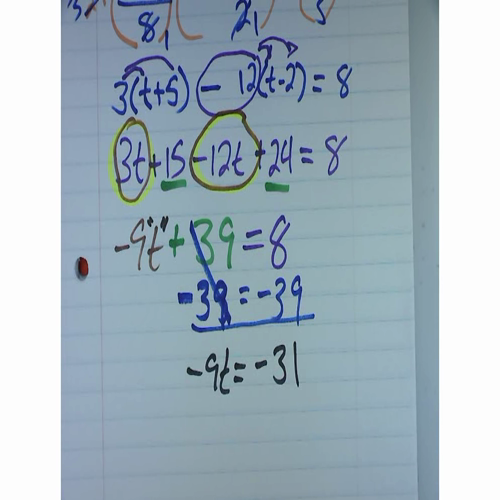 8 2 3
3(t+5) - 12(t-2) = 8
3t+15 -12t +24 = 8
-9t + 39 = 8
-39 = -39
-9t = -31